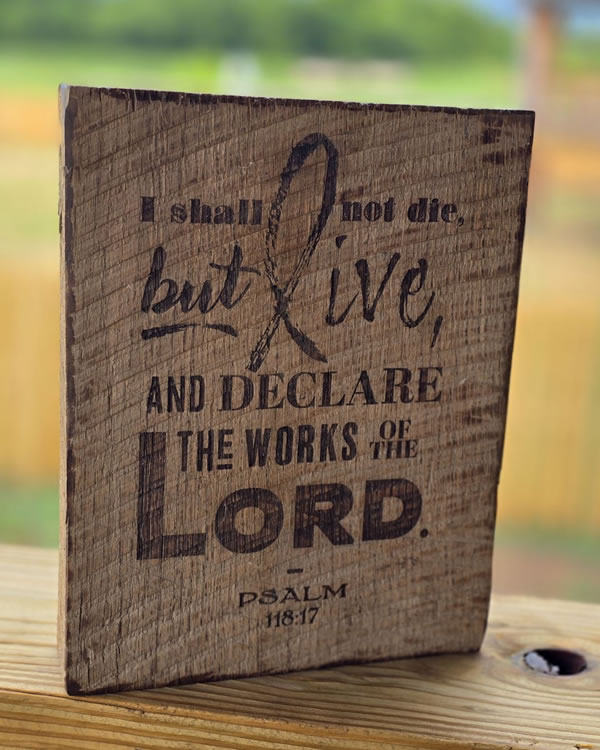 I shall not die,
but live,
AND DECLARE
THE WORKS OF THE
LORD.
PSALM
118:17